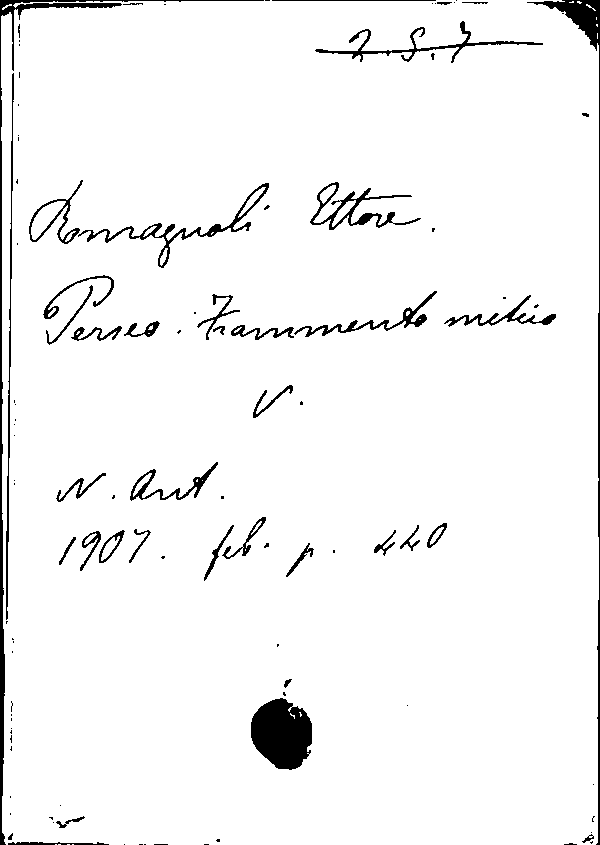 2.S.7
Romagnoli Ettore.
Perseo. Frammento mitico
V.
N. Ant.
1907. feb. p. 440